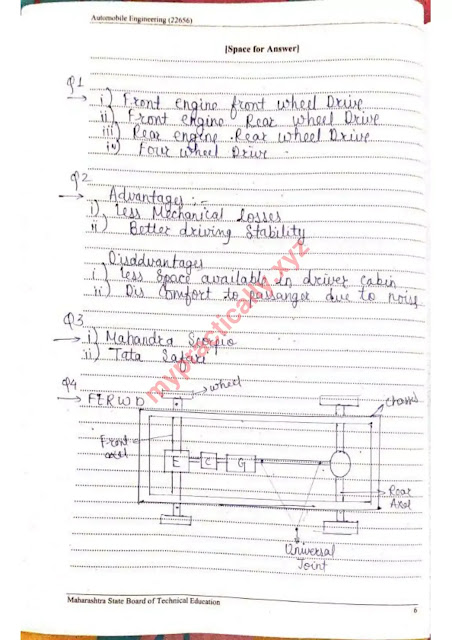 Automobile Engineering (22656)
[Space for Answer]
Q1
i) Front engine front wheel Drive
ii) Front engine Rear wheel Drive
iii) Rear engine Rear wheel Drive
iv) Four wheel Drive
Q2
Advantages :-
i) less Mechanical losses
ii) Better driving Stability
Disadvantages
i) less Space available In driver cabin
ii) Dis Comfort to passanger due to noise
Q3
i) Mahandra Scorpio
ii) Tata Safari
Q4
FERWD
wheel
chassis
Front
axel
E
C
G
Rear
Axel
Universal
Joint
mypractically.xyz
Maharashtra State Board of Technical Education
6